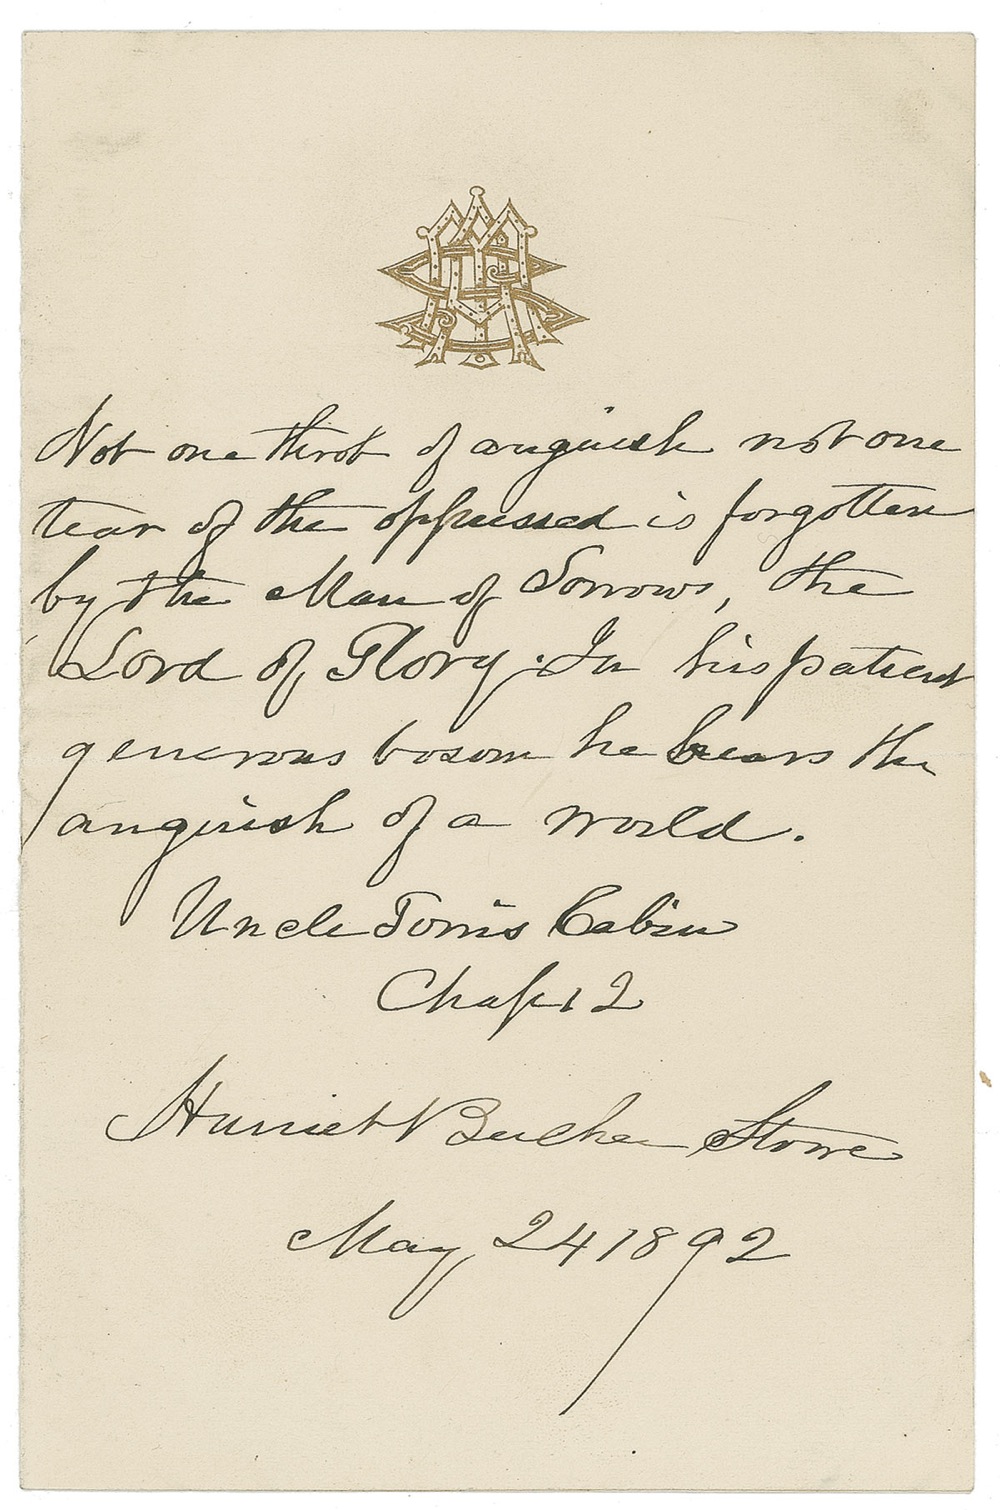 Not one throb of anguish not one
tear of the oppressed is forgotten
by the Man of Sorrows, the
Lord of Glory. In his patient
generous bosom he bears the
anguish of a world.
Uncle Tom's Cabin
Chap 12
Harriet Beecher Stowe
May 24 1892